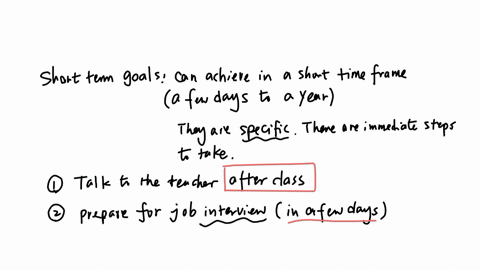 Short term goals: can achieve in a short time frame
(a few days to a year)
They are specific. There are immediate steps
to take.
① Talk to the teacher after class
② prepare for job interview (in a few days)